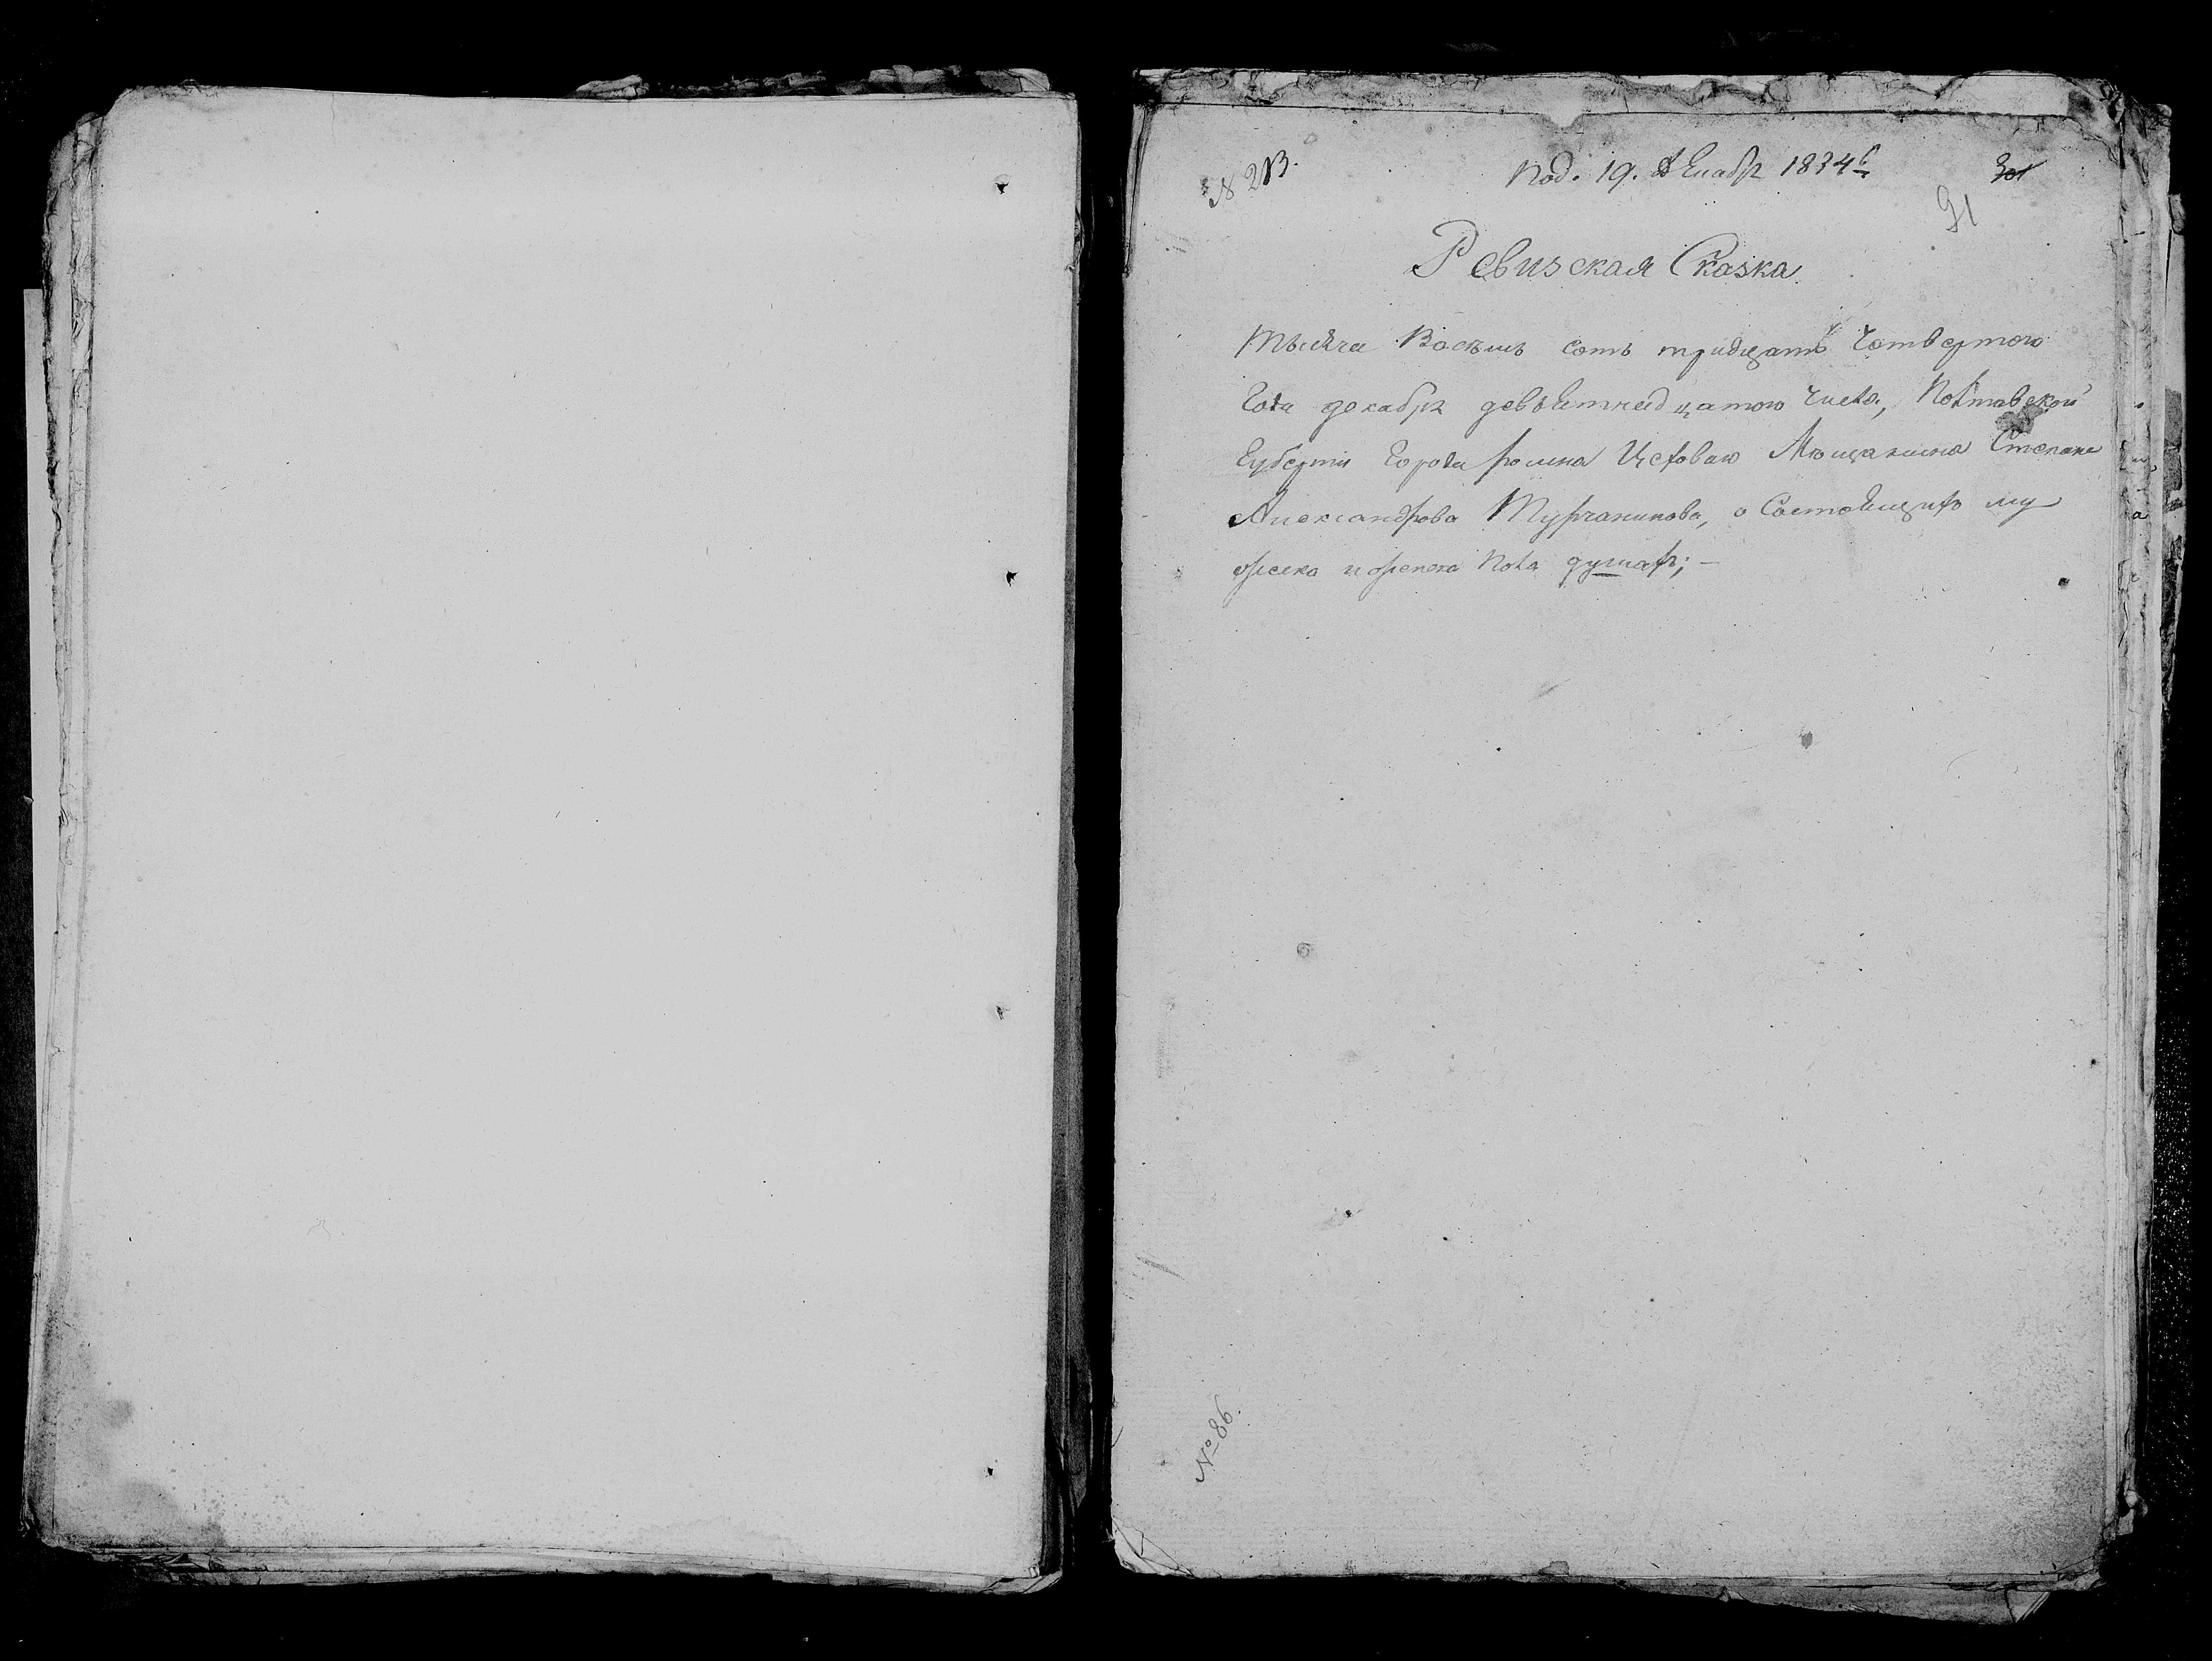 № 213.
Под. 19. декабр 1834 г
301
91
Ревизская Сказка.
тысяча Восемь сотъ тридцать Четвертого
Года декабря девятнадцатого числа, Полтавской
Губерни Города ромна Цеховаго Мещанина Степана
Александрова Турчанинова, о Состоящихъ му
жеска и женска пола душах; —
№ 86.